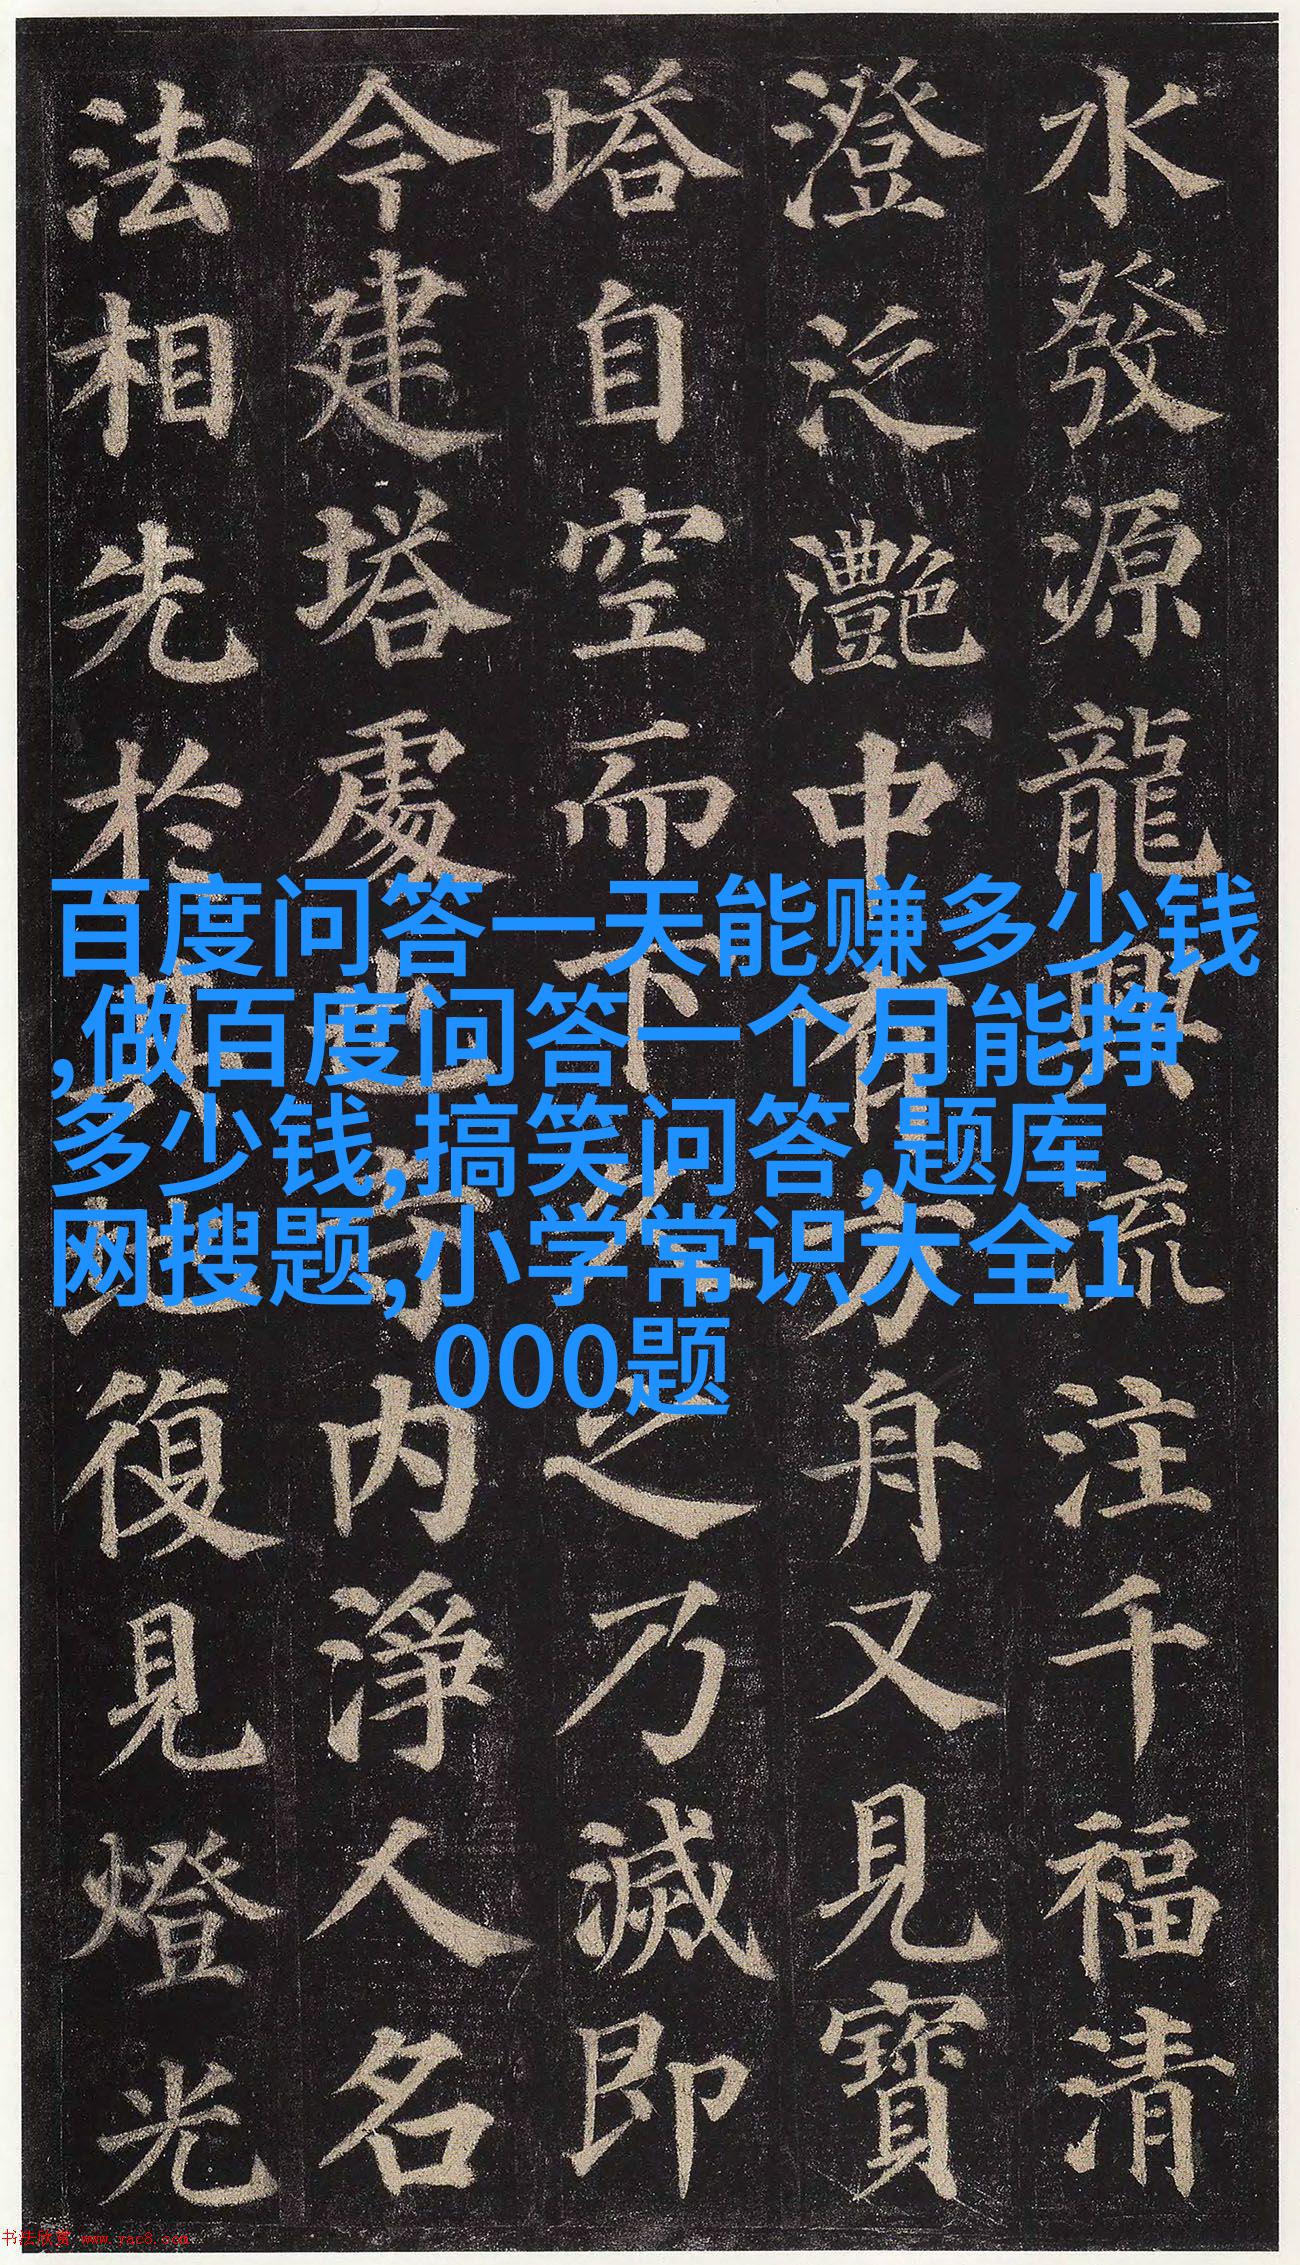 水發源龍興流注千福清
澄泛灩中有方舟又見寶
塔自空而下久之乃滅即
今建塔處也寺內淨人名
法相先於其地復見燈光
百度问答一天能赚多少钱
,做百度问答一个月能挣
多少钱,搞笑问答,题库
网搜题,小学常识大全1
000题
书法欣赏 www.yac8.com